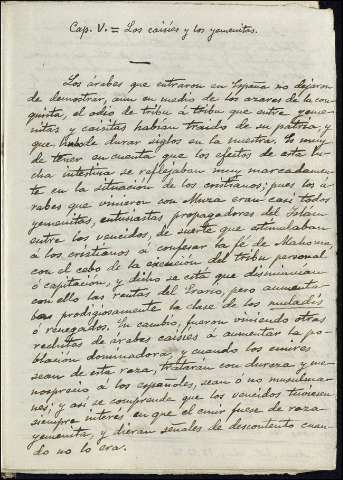 Cap. V. = Los caisíes y los yemenitas.
Los árabes que entraron en España no dejaron
de demostrar, aun en medio de los azares de la con-
quista, el odio de tribu á tribu que entre yeme-
nitas y caisitas habían traído de su patria, y
que hubo de durar siglos en la nuestra. Es muy
de tener en cuenta que los efectos de esta lu-
cha intestina se reflejaban muy marcadamen-
te en la situación de los cristianos; pues los á-
rabes que vinieron con Muza eran casi todos
yemenitas, entusiastas propagadores del Islam
entre los vencidos, de suerte que estimulaban
á los cristianos á confesar la fé de Mahoma,
con el cebo de la exención del tributo personal
ó capitación, y dicho se está que disminuían
con ello las rentas del Erario, pero aumenta-
ban prodigiosamente la clase de los muladís
ó renegados. En cambio, fueron viniendo otras
reclutas de árabes caisíes á aumentar la po-
blación dominadora, y cuando los emires
sean de esta raza, trataran con dureza y me-
nosprecio á los españoles, sean ó no musulma-
nes; y así se comprende que los vencidos tuviesen
siempre interés en que el emir fuese de raza
yemenita, y dieran señales de descontento cuan-
do no lo era.